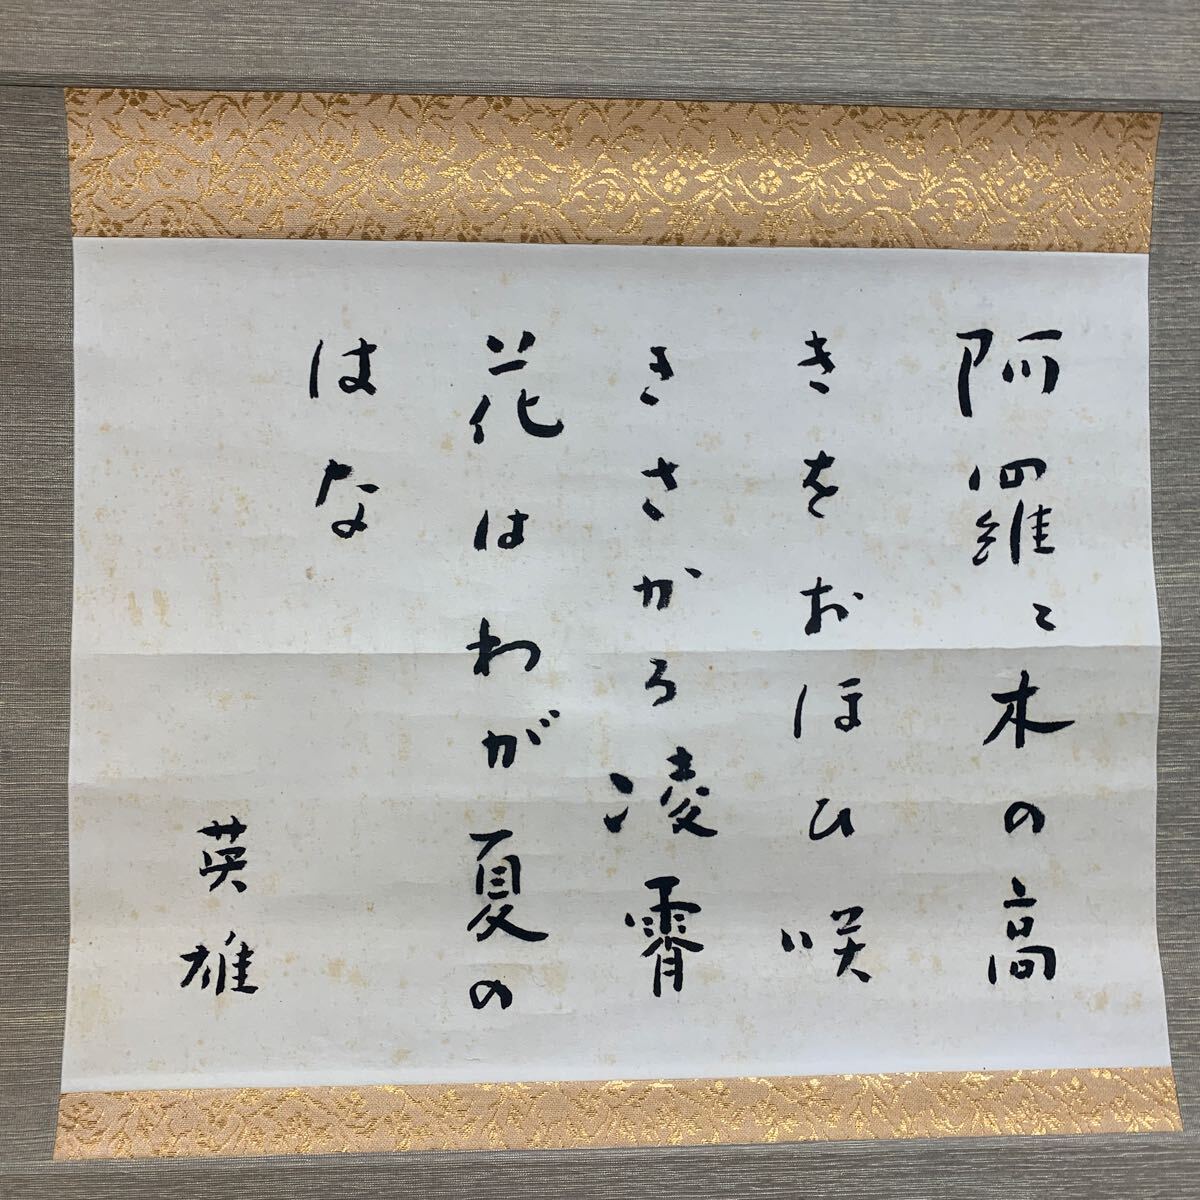 阿羅〻木の高
きをおほひ咲
きさかる凌霄
花はわが夏の
はな
英雄